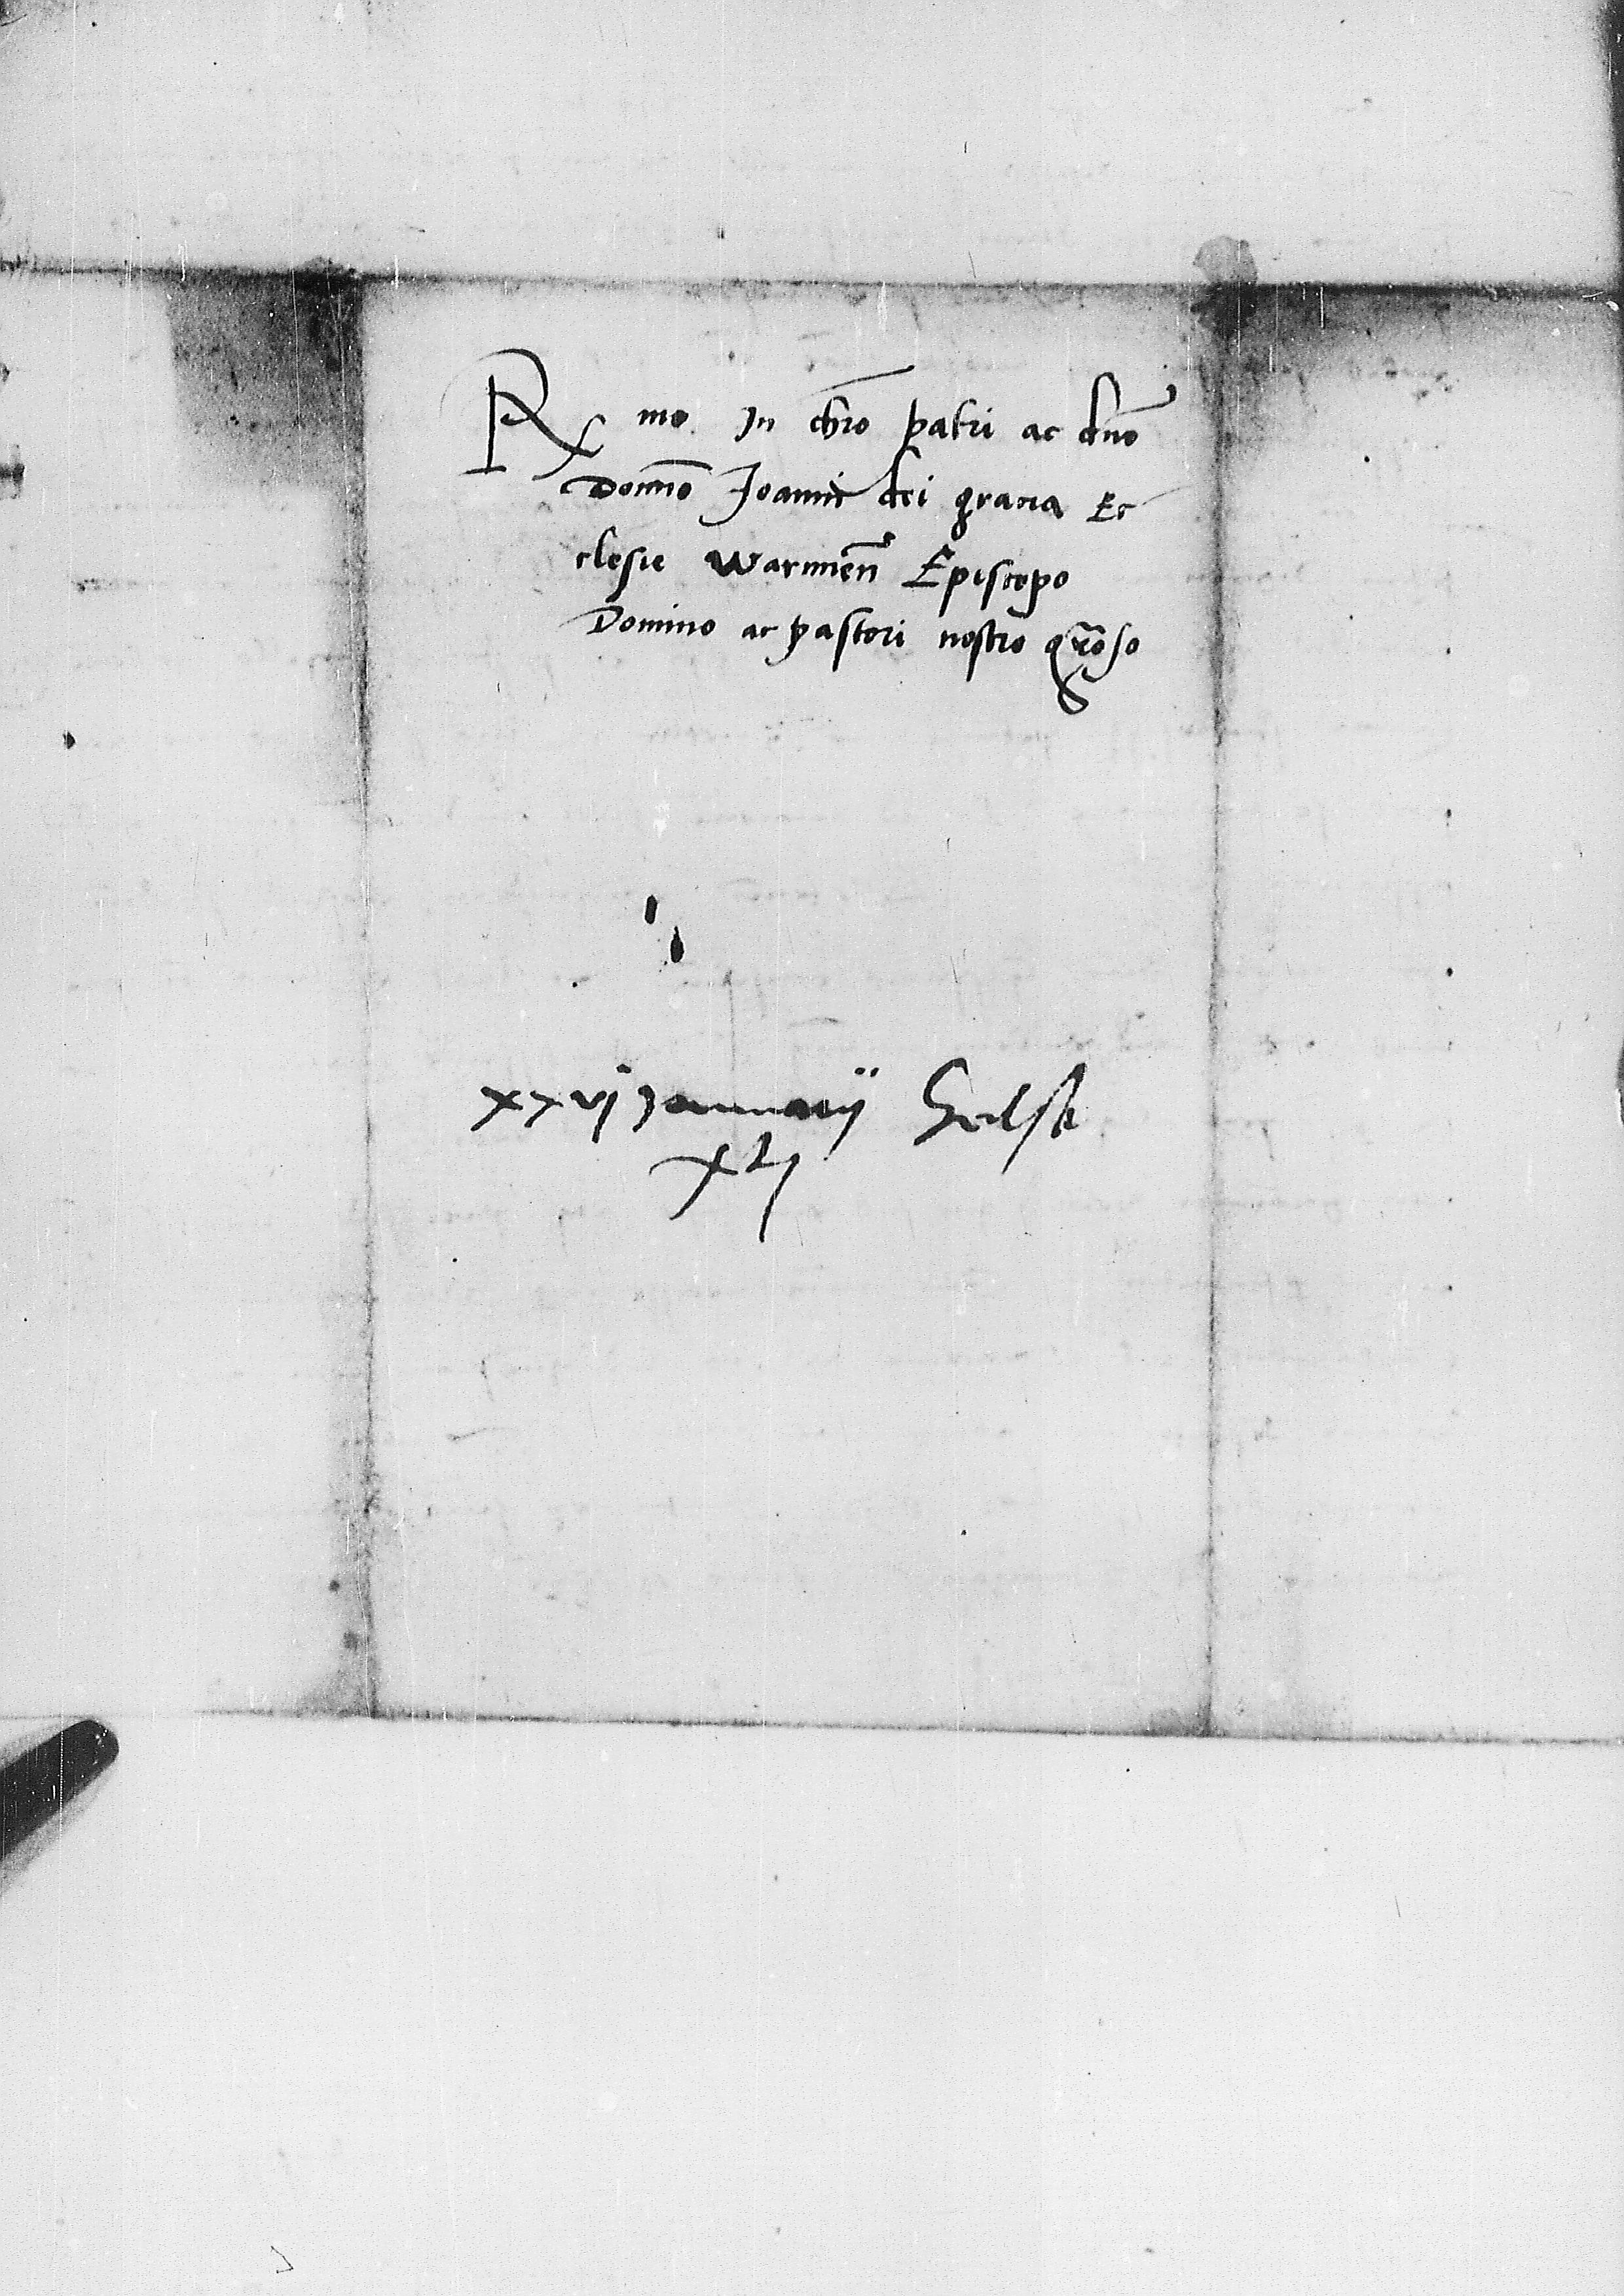 Rmo In chro patri ac dno
Domno Joanni dei gracia Ec
clesie Warmien Episcopo
Domino ac pastori nostro grōso
xxvj Januarij
xlj